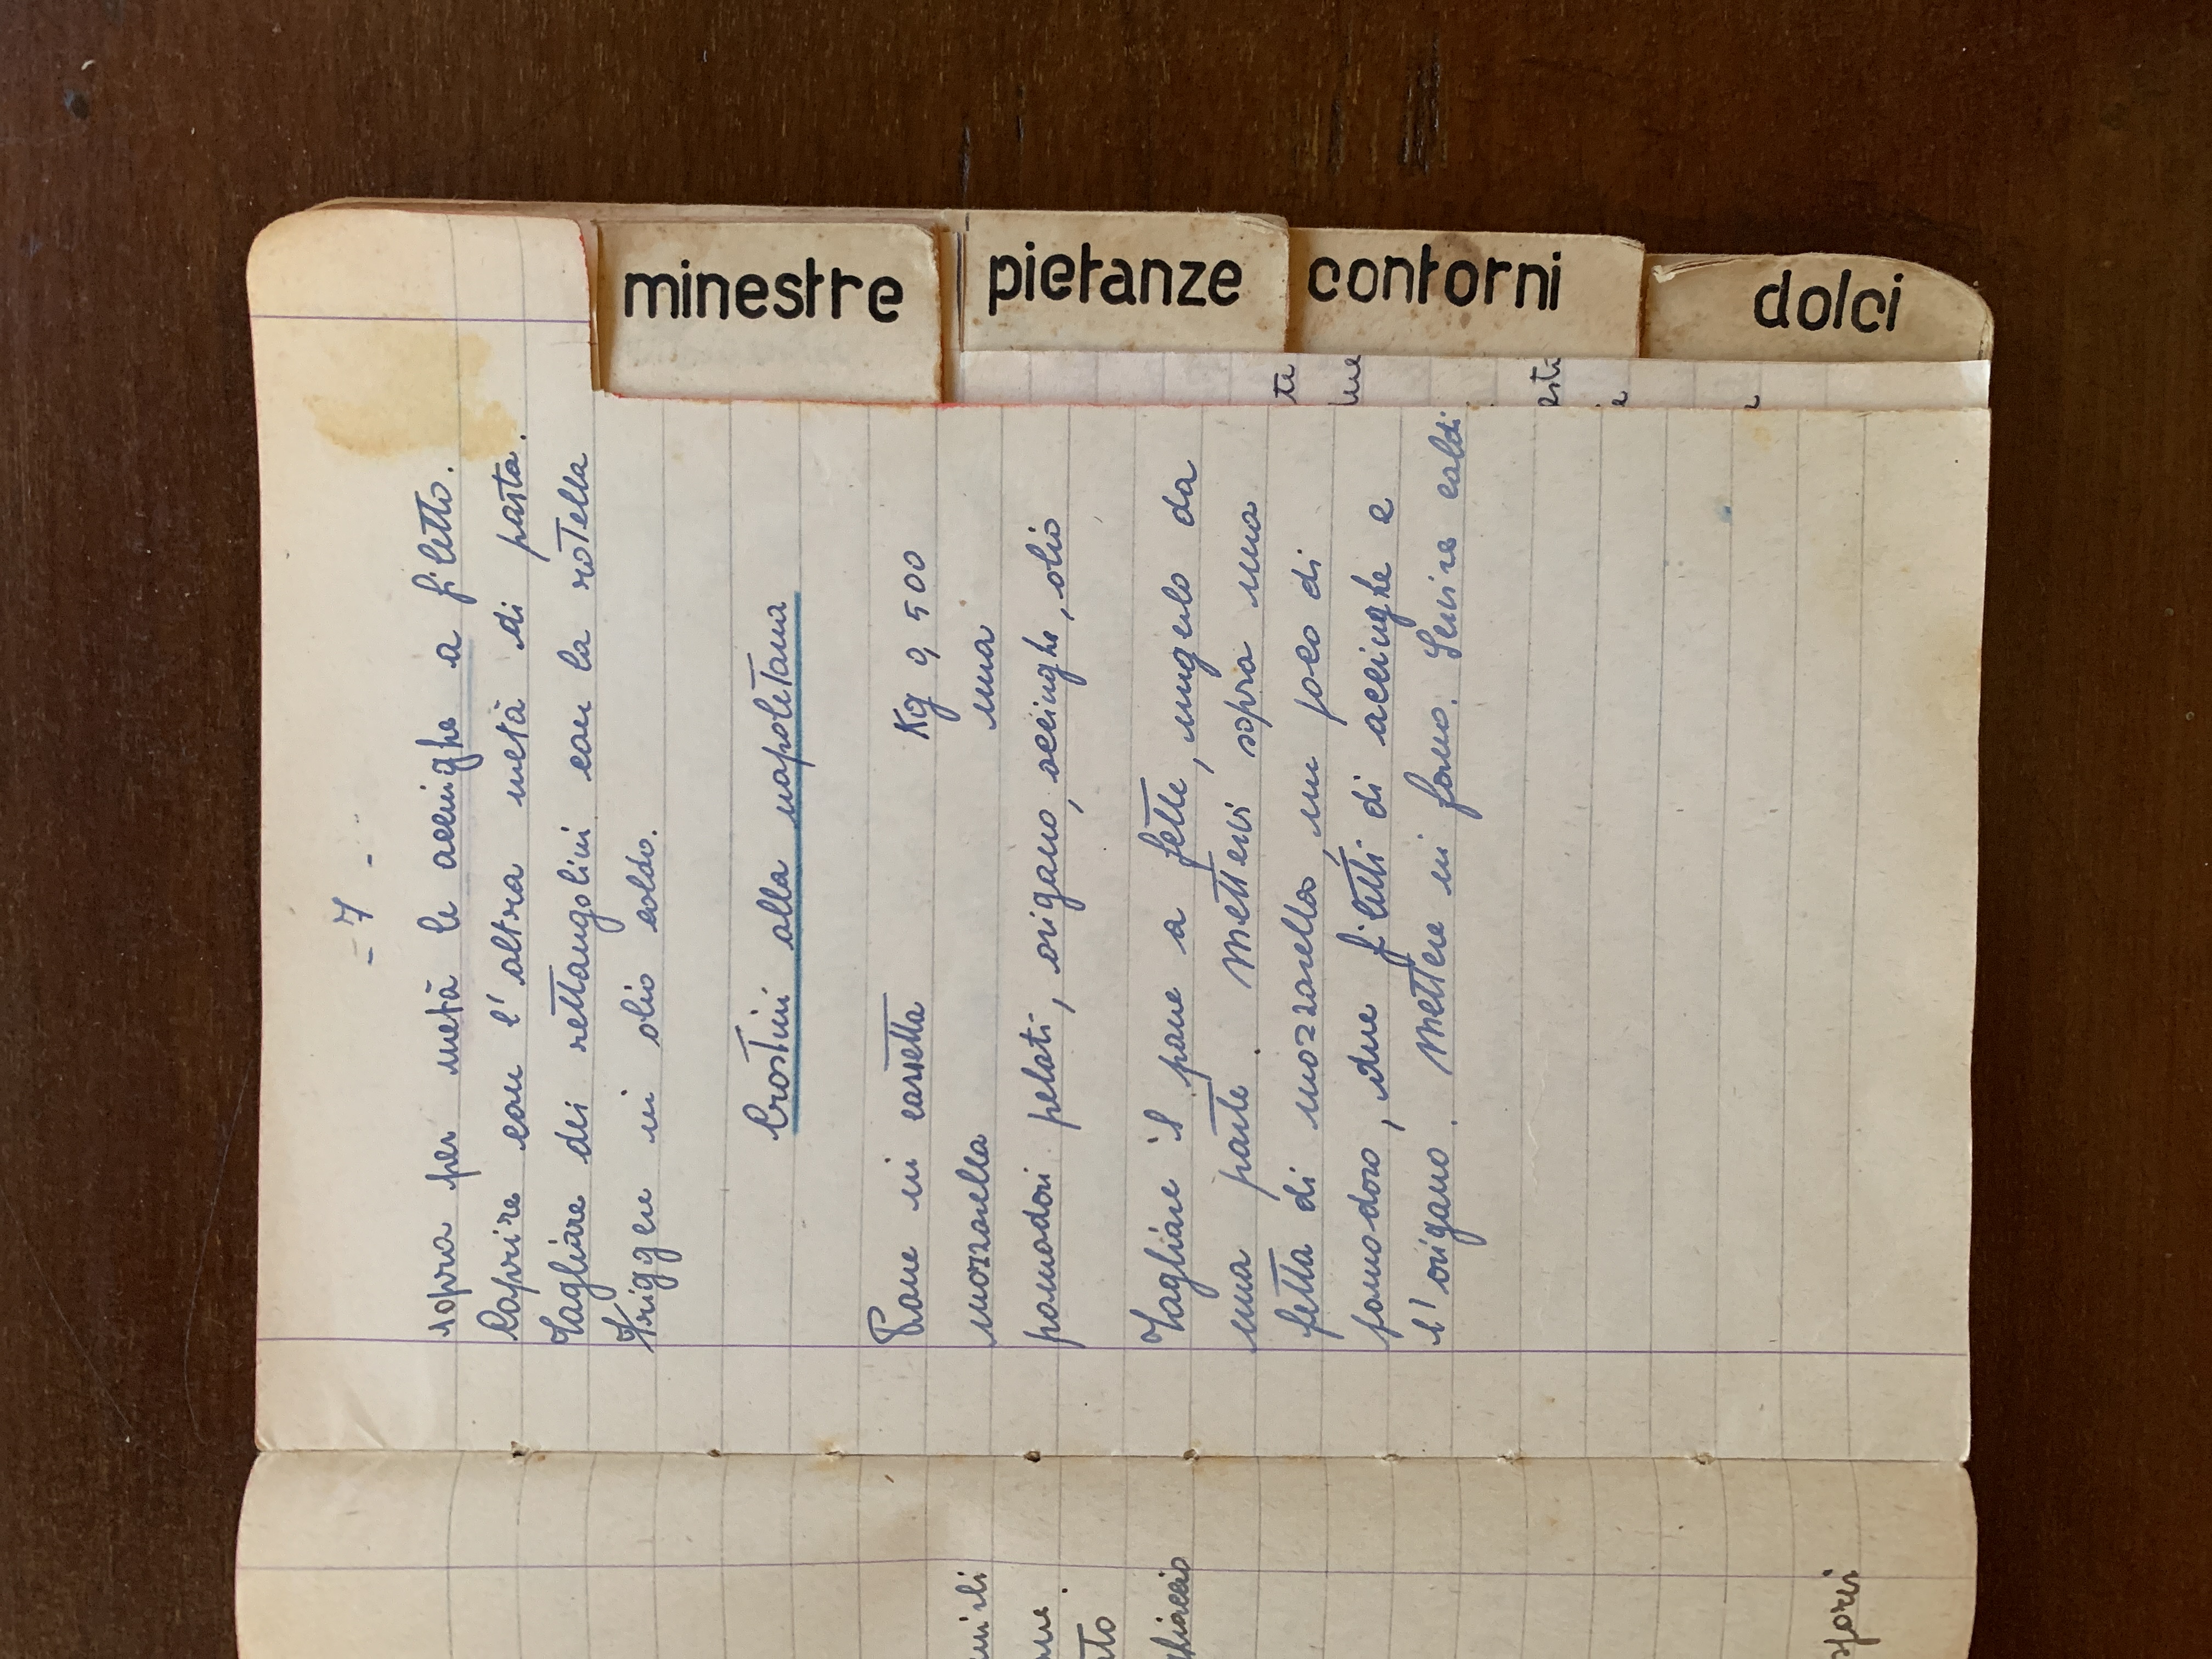 - 7 -
sopra per metà le accinghe a filetto.
Coprire con l'altra metà di pasta.
Tagliare dei rettangolini con la rotella
Friggere in olio caldo.
Crostini alla napoletana
Pane in cassetta Kg 0,500
mozzarella una
pomodori pelati, origano, accinghe, olio
Tagliare il pane a fette, ungerlo da
una parte. Mettervi sopra una
fetta di mozzarella, un poco di
pomodoro, due filetti di accinghe e
l'origano. Mettere in forno. Servire caldi
minestre
pietanze
contorni
dolci